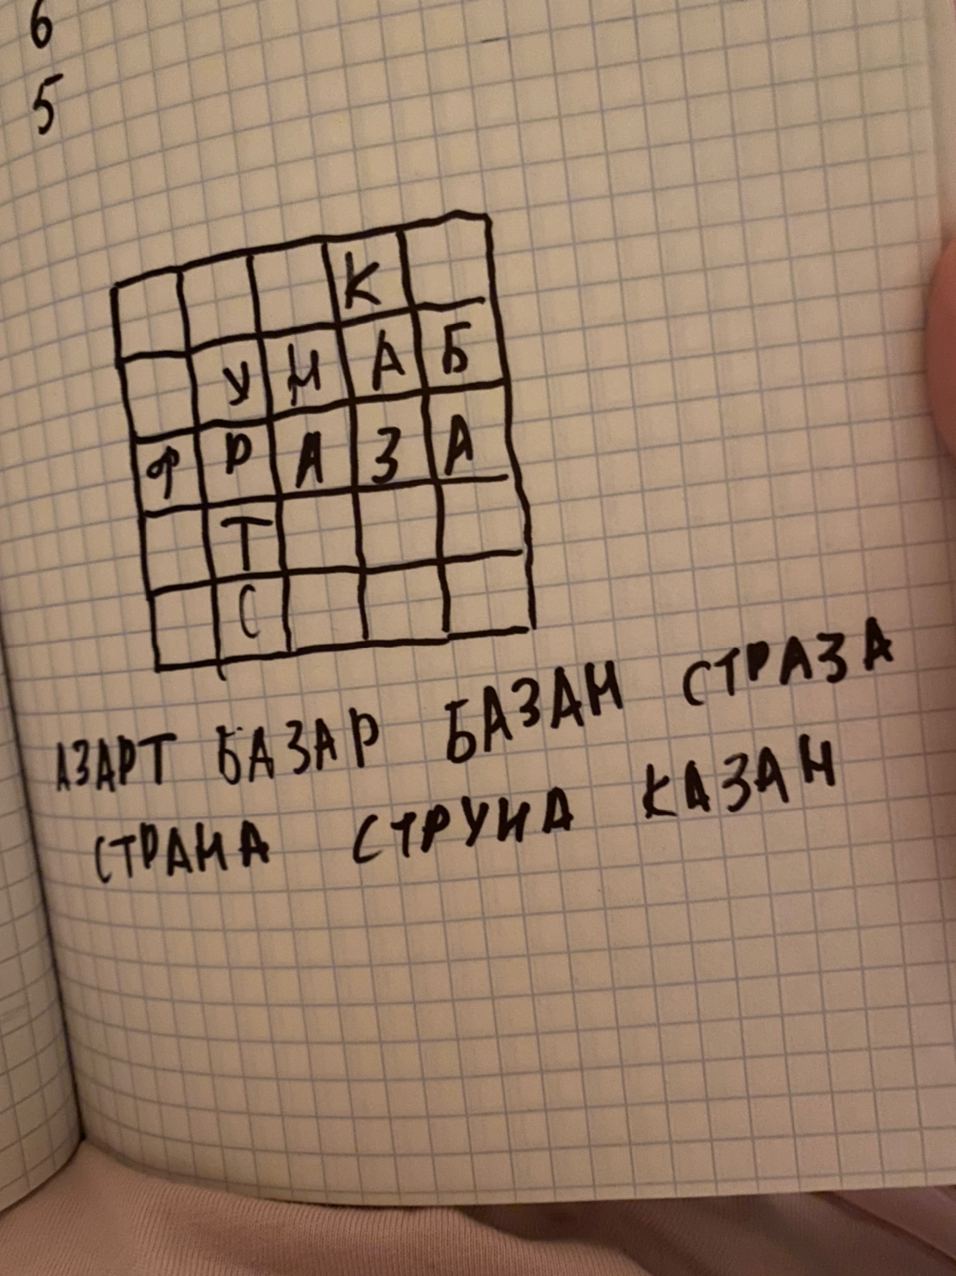 6
5
К
У Н А Б
Ф Р А З А
Т
С
АЗАРТ БАЗАР БАЗАН СТРАЗА
СТРАНА СТРУНА КАЗАН